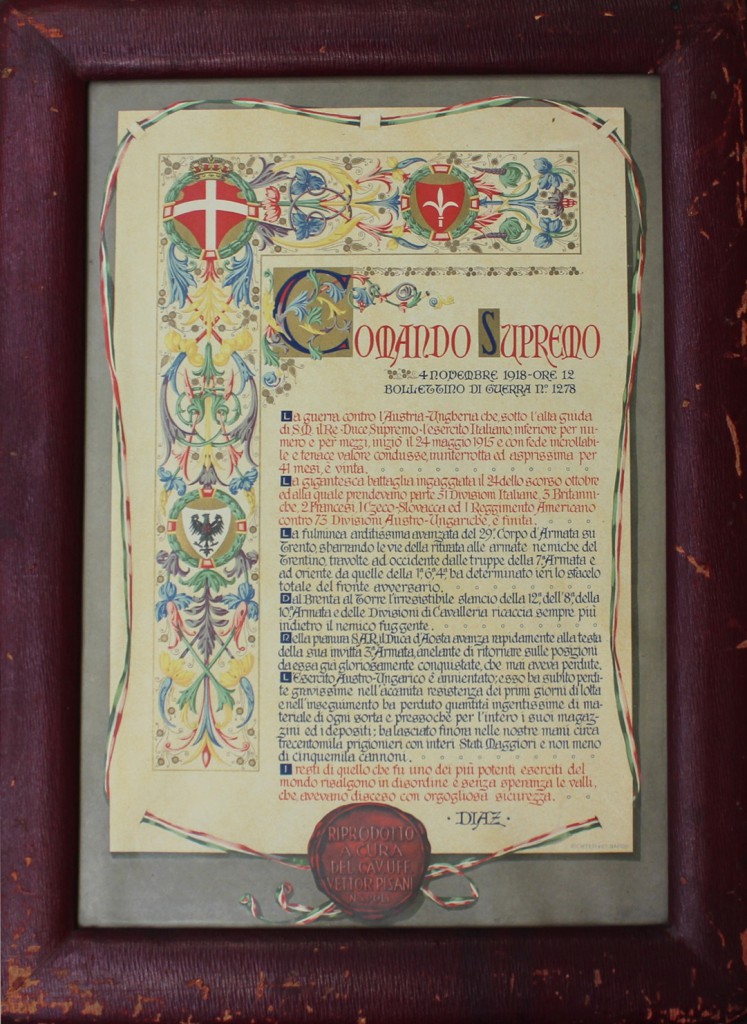 COMANDO SUPREMO
4 NOVEMBRE 1918 - ORE 12
BOLLETTINO DI GUERRA Nº 1278
La guerra contro l'Austria-Ungheria che, sotto l'alta guida
di S.M. il Re - Duce Supremo - l'esercito Italiano, inferiore per nu-
mero e per mezzi, iniziò il 24 maggio 1915 e con fede incrollabi-
le e tenace valore condusse, ininterrotta ed asprissima per
41 mesi, è vinta.
La gigantesca battaglia ingaggiata il 24 dello scorso ottobre
ed alla quale prendevano parte 51 Divisioni Italiane, 3 Britanni-
che, 2 Francesi, 1 Czeco-Slovacca ed 1 Reggimento Americano
contro 73 Divisioni Austro-Ungariche, è finita.
La fulminea arditissima avanzata del 29º Corpo d'Armata su
Trento, sbarrando le vie della ritirata alle armate nemiche del
Trentino, travolte ad occidente dalle truppe della 7ª Armata e
ad oriente da quelle della 1ª, 6ª, 4ª, ha determinato ieri lo sfacelo
totale del fronte avversario.
Dal Brenta al Torre l'irresistibile slancio della 12ª, dell'8ª, della
10ª Armata e delle Divisioni di Cavalleria ricaccia sempre più
indietro il nemico fuggente.
Nella pianura S.A.R. il Duca d'Aosta avanza rapidamente alla testa
della sua invitta 3ª Armata, anelante di ritornare sulle posizioni
da essa già gloriosamente conquistate, che mai aveva perdute.
L'Esercito Austro-Ungarico è annientato; esso ha subìto perdi-
te gravissime nell'accanita resistenza dei primi giorni di lotta
e nell'inseguimento ha perduto quantità ingentissime di ma-
teriale di ogni sorta e pressoché per l'intero i suoi magaz-
zini ed i depositi; ha lasciato finora nelle nostre mani circa
trecentomila prigionieri con interi Stati Maggiori e non meno
di cinquemila cannoni.
I resti di quello che fu uno dei più potenti eserciti del
mondo risalgono in disordine e senza speranza le valli,
che avevano disceso con orgogliosa sicurezza.
· DIAZ ·
RIPRODOTTO
A CURA
DEL CAV. UFF.
VETTOR PISANI